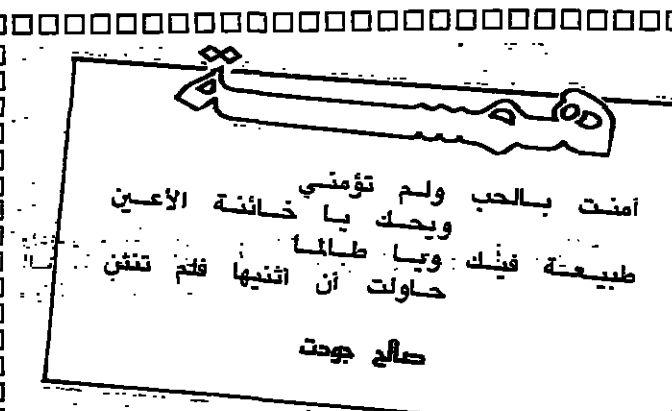 همسة
أمنت بالحب ولم تؤمني
ويحك يا خائنة الأعين
طبيعة فيك ويا طالما
حاولت أن أثنيها فلم تنثن
صالح جودت